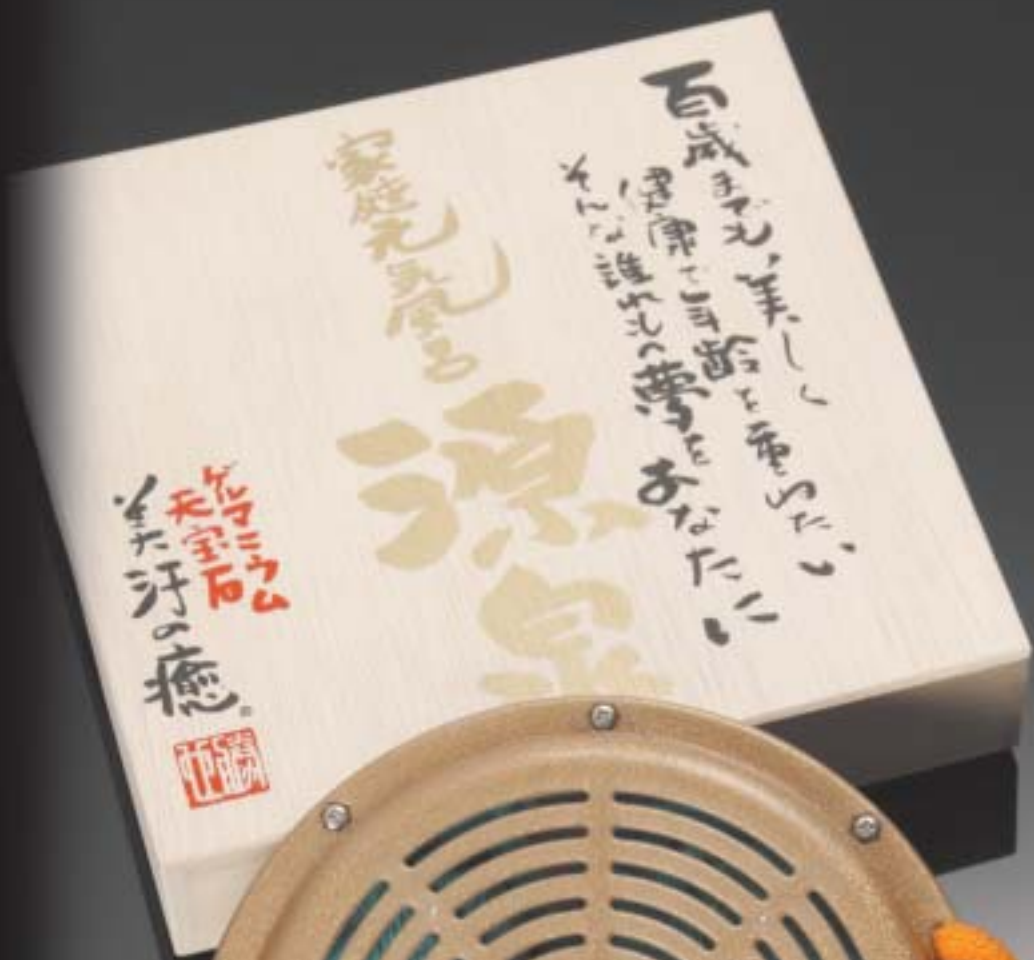 百歳までも、美しく
健康で年齢を重ねたい
そんな誰れもの夢を
あなたに
家庭元気風呂
源泉
ゲルマニウム
天宝石
美汗の癒。